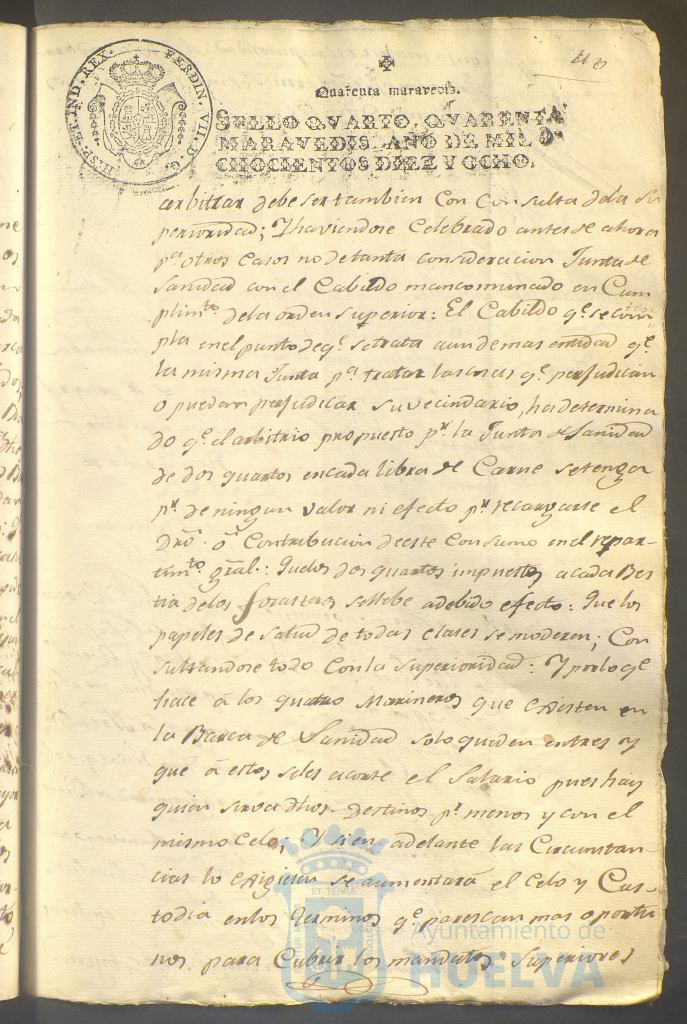 HISP. ET IND. REX. FERDIN. VII. D. G.
Quarenta maravedis.
SELLO QVARTO. QVARENTA
MARAVEDIS. AÑO DE MIL O-
CHOCIENTOS DIEZ Y OCHO.
arbitrar debe ser tambien con consulta dela Su
perioridad; Y haviendose celebrado antes de ahora
pa. otros casos no de tanta consideracion Junta de
Sanidad con el Cabildo mancomunado en Cum
plimto. dela orden superior: El Cabildo qe. se
pla en el punto de qe. se trata aun de mas entidad qe.
la misma Junta pa. tratar las cosas qe. perjudican
o puedan perjudicar su vecindario, ha determina
do qe. el arbitrio propuesto pr. la Junta de Sanidad
de dos quartos en cada libra de Carne se tenga
pr. de ningun valor ni efecto pr. recargarse el
Dro. o Contribucion de este Consumo en el repar-
timto. gral.: Que los dos quartos impuestos a cada Bes
tia delos forasteros se llebe a debido efecto: Que los
papeles de Salud de todas clases se moderen; Con
sultandose todo con la Superioridad: Y por lo qe.
hace á los quatro Marineros que existen en
la Barca de Sanidad solo queden en tres y
que á estos se les acorte el Salario pues hay
quien sirva dhos. Destinos pr. menos y con el
mismo Celo; Y si en adelante las Circunstan
cias lo exigiesen se aumentará el Celo y Cus-
todia en los terminos qe. parescan mas oportu
nos para Cubrir los mandatos Superiores
Ayuntamiento de
HUELVA